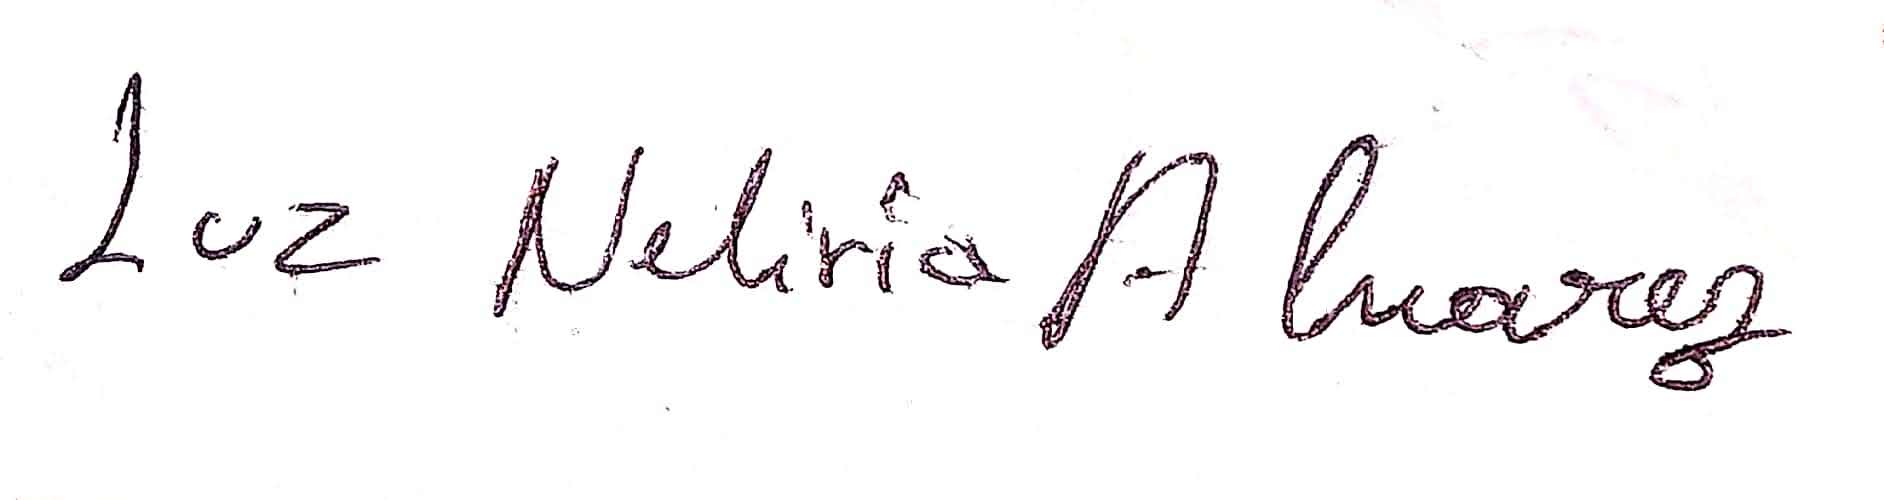 Luz Neliria Alvarez